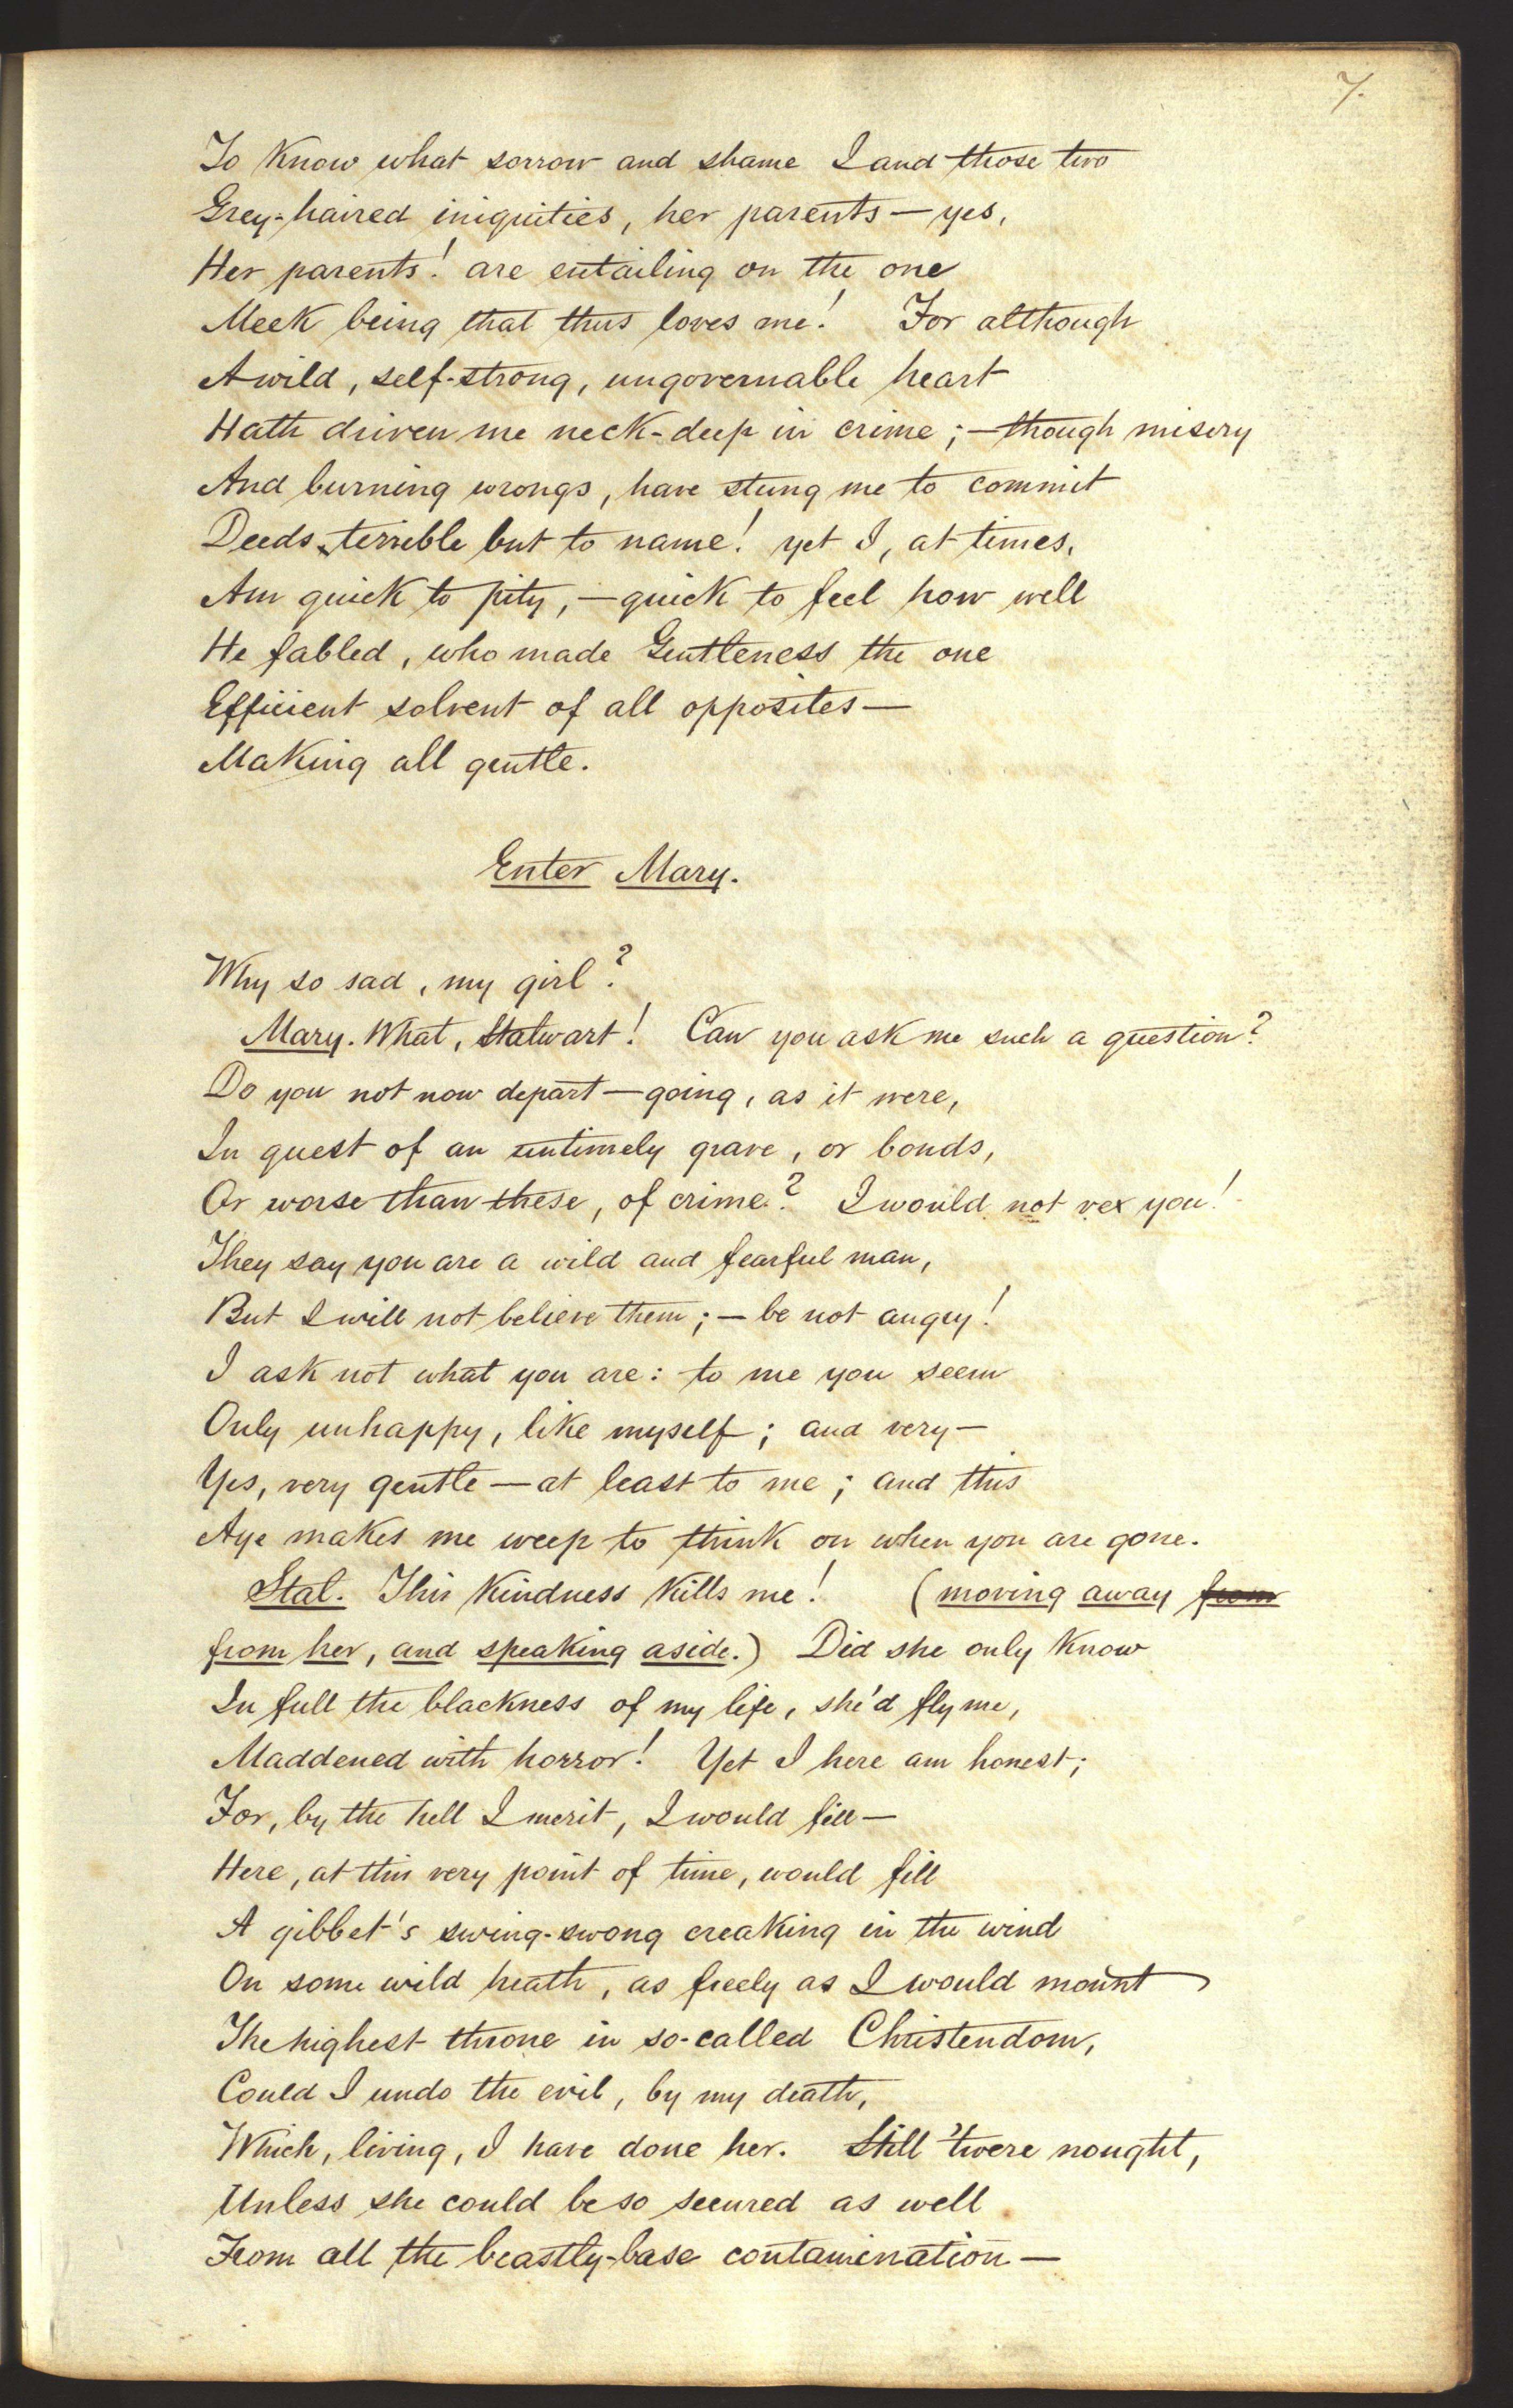 7.
To Know what sorrow and shame I and those two
Grey-haired iniquities, her parents — yes,
Her parents! are entailing on the one
Meek being that thus loves me! For although
A wild, self-strong, ungovernable heart
Hath driven me neck-deep in crime; — though misery
And burning wrongs, have stung me to commit
Deeds, terrible but to name! yet I, at times,
Am quick to pity, — quick to feel how well
He fabled, who made Gentleness the one
Efficient solvent of all opposites —
Making all gentle.
Enter Mary.
Why so sad, my girl?
Mary. What, Stalwart! Can you ask me such a question?
Do you not now depart — going, as it were,
In quest of an untimely grave, or bonds,
Or worse than these, of crime? I would not vex you!
They say you are a wild and fearful man,
But I will not believe them; — be not angry!
I ask not what you are: to me you seem
Only unhappy, like myself; and very —
Yes, very gentle — at least to me; and this
Aye makes me weep to think on when you are gone.
Stal. This Kindness Kills me! (moving away from
from her, and speaking aside.) Did she only Know
In full the blackness of my life, she'd fly me,
Maddened with horror! Yet I here am honest;
For, by the hell I merit, I would fill —
Here, at this very point of time, would fill
A gibbet's swing-swong creaking in the wind
On some wild heath, as freely as I would mount
The highest throne in so-called Christendom,
Could I undo the evil, by my death,
Which, living, I have done her. Still 'twere nought,
Unless she could be so secured as well
From all the beastly-base contamination —